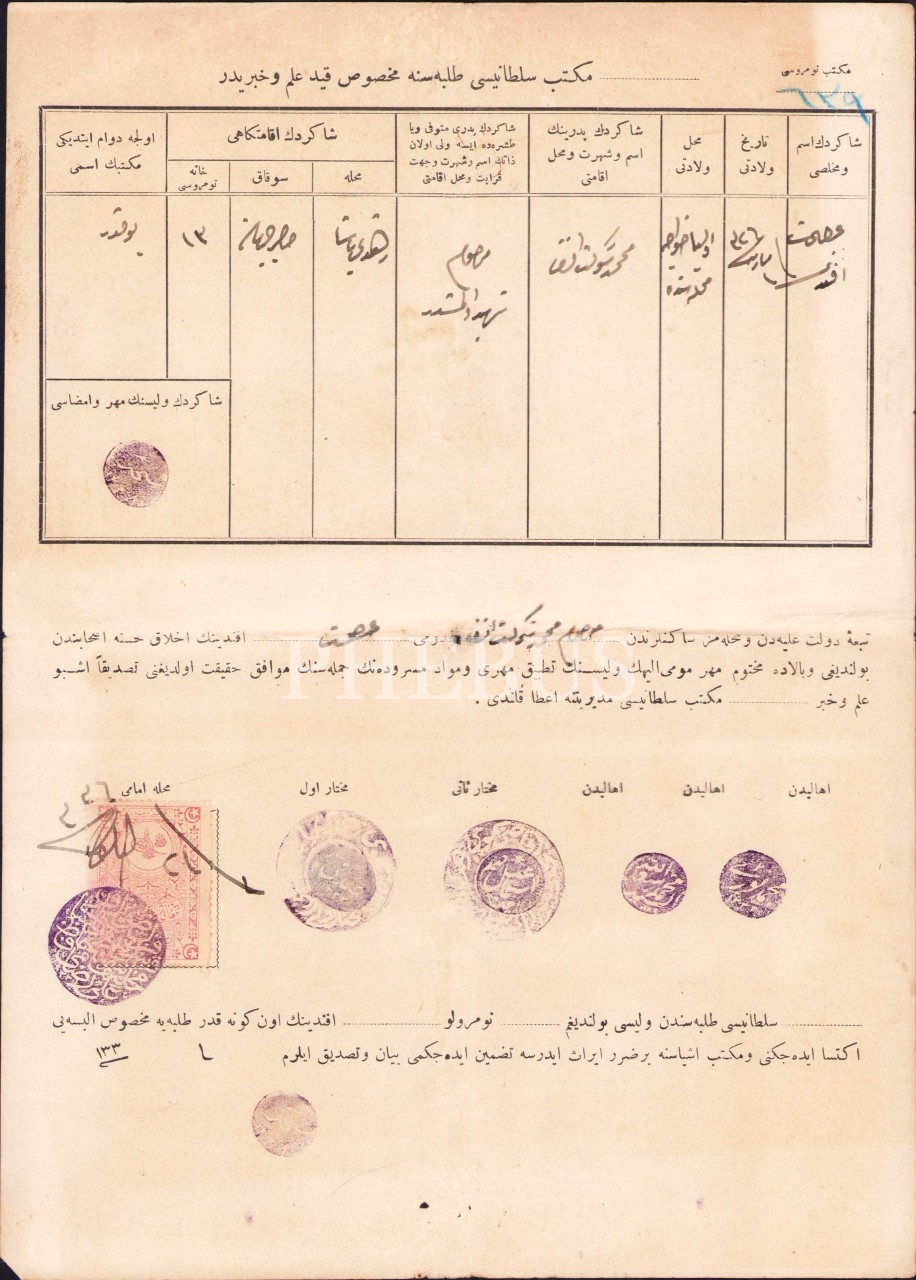 مكتب نومروسی
٦٣٩
مكتب سلطانیسی طلبه‌سنه مخصوص قید علم و خبریدر
شاكردك اسم و مخلصی
تاریخ ولادتی
محل ولادتی
شاكردك پدرینك اسم و شهرت و محل اقامتی
شاكردك پدری متوفی و یا طشره‌ده ایسه ولی اولان ذاتك اسم و شهرت و جهت قرابت و محل اقامتی
شاكردك اقامتكاهی
محله
سوقاق
خانه نومروسی
اولجه دوام ایتدیكی مكتبك اسمی
عصمت افندی
٣٢٦ مارت
محمد شوكت افندی
مرحوم
شهید اولمشدر
١٣
یوقدر
شاكردك ولیسنك مهر و امضاسی
تبعهٔ دولت علیه‌دن و محله‌مز ساكنلرندن مرحوم محمد شوكت افندی مخدومی عصمت افندینك اخلاق حسنه اصحابندن
بولندیغی و بالاده مختوم مهر مومی الیهك ولیسنك تطبیق مهری و مواد مسروده‌نك جمله‌سنك موافق حقیقت اولدیغی تصدیقاً اشبو
علم و خبر مكتب سلطانیسی مدیریتنه اعطا قلندی .
PHEBUS
اهالیدن اهالیدن اهالیدن مختار ثانی مختار اول محله امامی
٣٣٦
سلطانیسی طلبه‌سندن ولیسی بولندیغم نومرولو افندینك اون كونه قدر طلبه‌یه مخصوص البسه‌یی
اكتسا ایده‌جكنی و مكتب اشیاسنه بر ضرر ایراث ایدرسه تضمین ایده‌جكمی بیان و تصدیق ایلرم ١٣٣